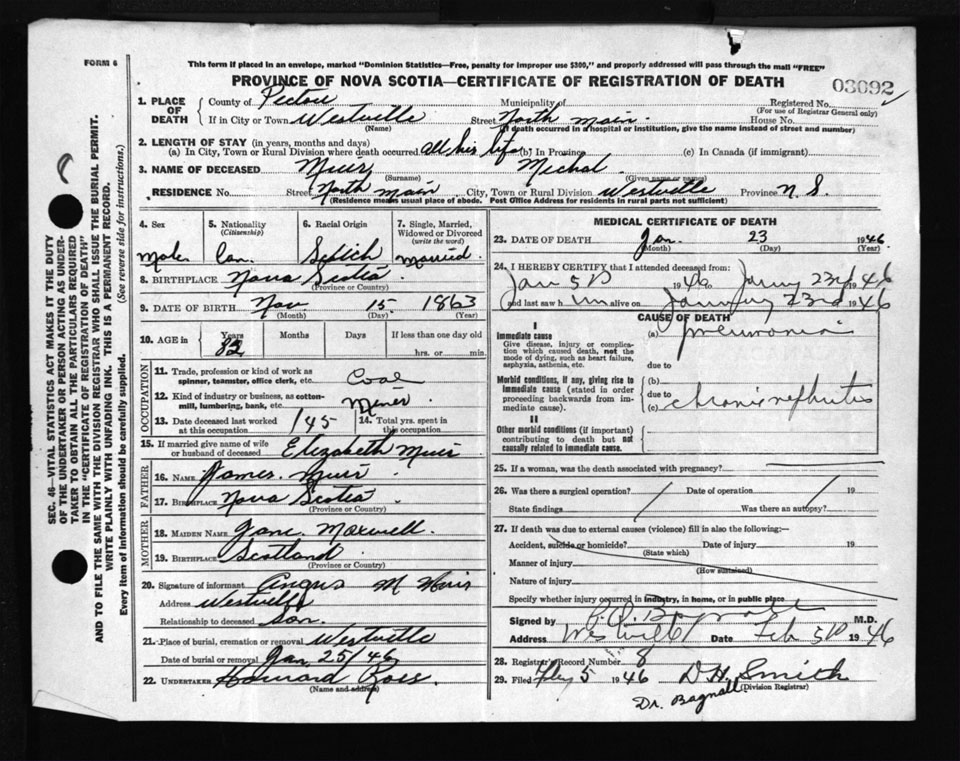 FORM 6
This form if placed in an envelope, marked "Dominion Statistics—Free, penalty for improper use $300," and properly addressed will pass through the mail "FREE"
PROVINCE OF NOVA SCOTIA—CERTIFICATE OF REGISTRATION OF DEATH
03092
1. PLACE OF DEATH
County of Pictou Municipality of Registered No.
(For use of Registrar General only)
If in City or Town Westville Street North Main House No.
(Name) (If death occurred in a hospital or institution, give the name instead of street and number)
2. LENGTH OF STAY (in years, months and days)
(a) In City, Town or Rural Division where death occurred All his life (b) In Province (c) In Canada (if immigrant)
3. NAME OF DECEASED Muir Michal
(Surname) (Given name or names)
RESIDENCE No. Street North Main City, Town or Rural Division Westville Province N. S.
(Residence means usual place of abode. Post Office Address for residents in rural parts not sufficient)
4. Sex 5. Nationality (Citizenship) 6. Racial Origin 7. Single, Married, Widowed or Divorced (write the word)
Male Can. Scotch Married
8. BIRTHPLACE Nova Scotia
(Province or Country)
9. DATE OF BIRTH Nov 15 1863
(Month) (Day) (Year)
10. AGE in Years Months Days If less than one day old
82 hrs. or min.
OCCUPATION
11. Trade, profession or kind of work as spinner, teamster, office clerk, etc. Coal
12. Kind of industry or business, as cotton-mill, lumbering, bank, etc. Miner
13. Date deceased last worked at this occupation 14. Total yrs. spent in this occupation
15. If married give name of wife or husband of deceased Elizabeth Muir
FATHER
16. NAME James Muir
17. BIRTHPLACE Nova Scotia
(Province or Country)
MOTHER
18. MAIDEN NAME Jane Maxwell
19. BIRTHPLACE Scotland
(Province or Country)
20. Signature of informant Angus M Muir
Address Westville
Relationship to deceased Son.
21. Place of burial, cremation or removal Westville
Date of burial or removal Jan 25/46
22. UNDERTAKER Howard Ross
(Name and address)
MEDICAL CERTIFICATE OF DEATH
23. DATE OF DEATH Jan. 23 1946
(Month) (Day) (Year)
24. I HEREBY CERTIFY that I attended deceased from:
Jan 5 1946 January 23rd 1946
and last saw him alive on January 23rd 1946
CAUSE OF DEATH
I
Immediate cause
Give disease, injury or complication which caused death, not the mode of dying, such as heart failure, asphyxia, asthenia, etc.
(a) pneumonia
due to
Morbid conditions, if any, giving rise to immediate cause (stated in order proceeding backwards from immediate cause).
(b)
due to
(c) chronic nephritis
II
Other morbid conditions (if important) contributing to death but not causally related to immediate cause.
25. If a woman, was the death associated with pregnancy?
26. Was there a surgical operation? Date of operation 19
State findings Was there an autopsy?
27. If death was due to external causes (violence) fill in also the following:—
Accident, suicide or homicide? Date of injury 19
(State which)
Manner of injury
(How sustained)
Nature of injury
Specify whether injury occurred in industry, in home, or in public place
Signed by Bagnall M.D.
Address Westville Date Feb 5 1946
28. Registrar's Record Number 8
29. Filed Feb 5 1946 D.H. Smith
(Division Registrar)
Dr. Bagnall
SEC. 46—VITAL STATISTICS ACT MAKES IT THE DUTY
OF THE UNDERTAKER OR PERSON ACTING AS UNDER-
TAKER TO OBTAIN ALL THE PARTICULARS REQUIRED
IN THE "CERTIFICATE OF REGISTRATION OF DEATH"
AND TO FILE THE SAME WITH THE DIVISION REGISTRAR WHO SHALL ISSUE THE BURIAL PERMIT.
WRITE PLAINLY WITH UNFADING INK. THIS IS A PERMANENT RECORD.
Every item of information should be carefully supplied. (See reverse side for instructions.)